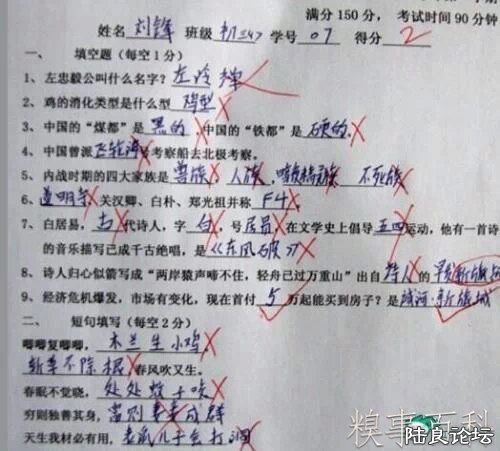 满分 150 分， 考试时间 90 分钟
姓名 刘锋 班级 初三<4> 学号 07 得分 2
一、 填空题（每空 1 分）
1、左忠毅公叫什么名字？左冷禅
2、鸡的消化类型是什么型 鸡型
3、中国的“煤都”是 黑的，中国的“铁都”是 硬的．
4、中国曾派 飞轮海 号考察船去北极考察。
5、内战时期的四大家族是 兽族、人族、暗夜精灵族 不死族
6、道明寺、关汉卿、白朴、郑光祖并称 F4
7、白居易，古 代诗人，字 白，号 居易，在文学史上倡导 五四 运动，他有一首诗
的音乐描写已成千古绝唱，是《东风破》
8、诗人归心似箭写成“两岸猿声啼不住，轻舟已过万重山”出自 诗人 的
9、经济危机爆发，市场有变化，现在首付 5 万起能买到房子？是 新旅城
二、 短句填写（每空 2 分）
唧唧复唧唧，木兰生小鸡．
斩草不除根 春风吹又生。
春眠不觉晓，处处蚊子咬
穷则独善其身，富则妻妾成群
天生我材必有用，老鼠儿子会打洞
糗事百科
陆良论坛